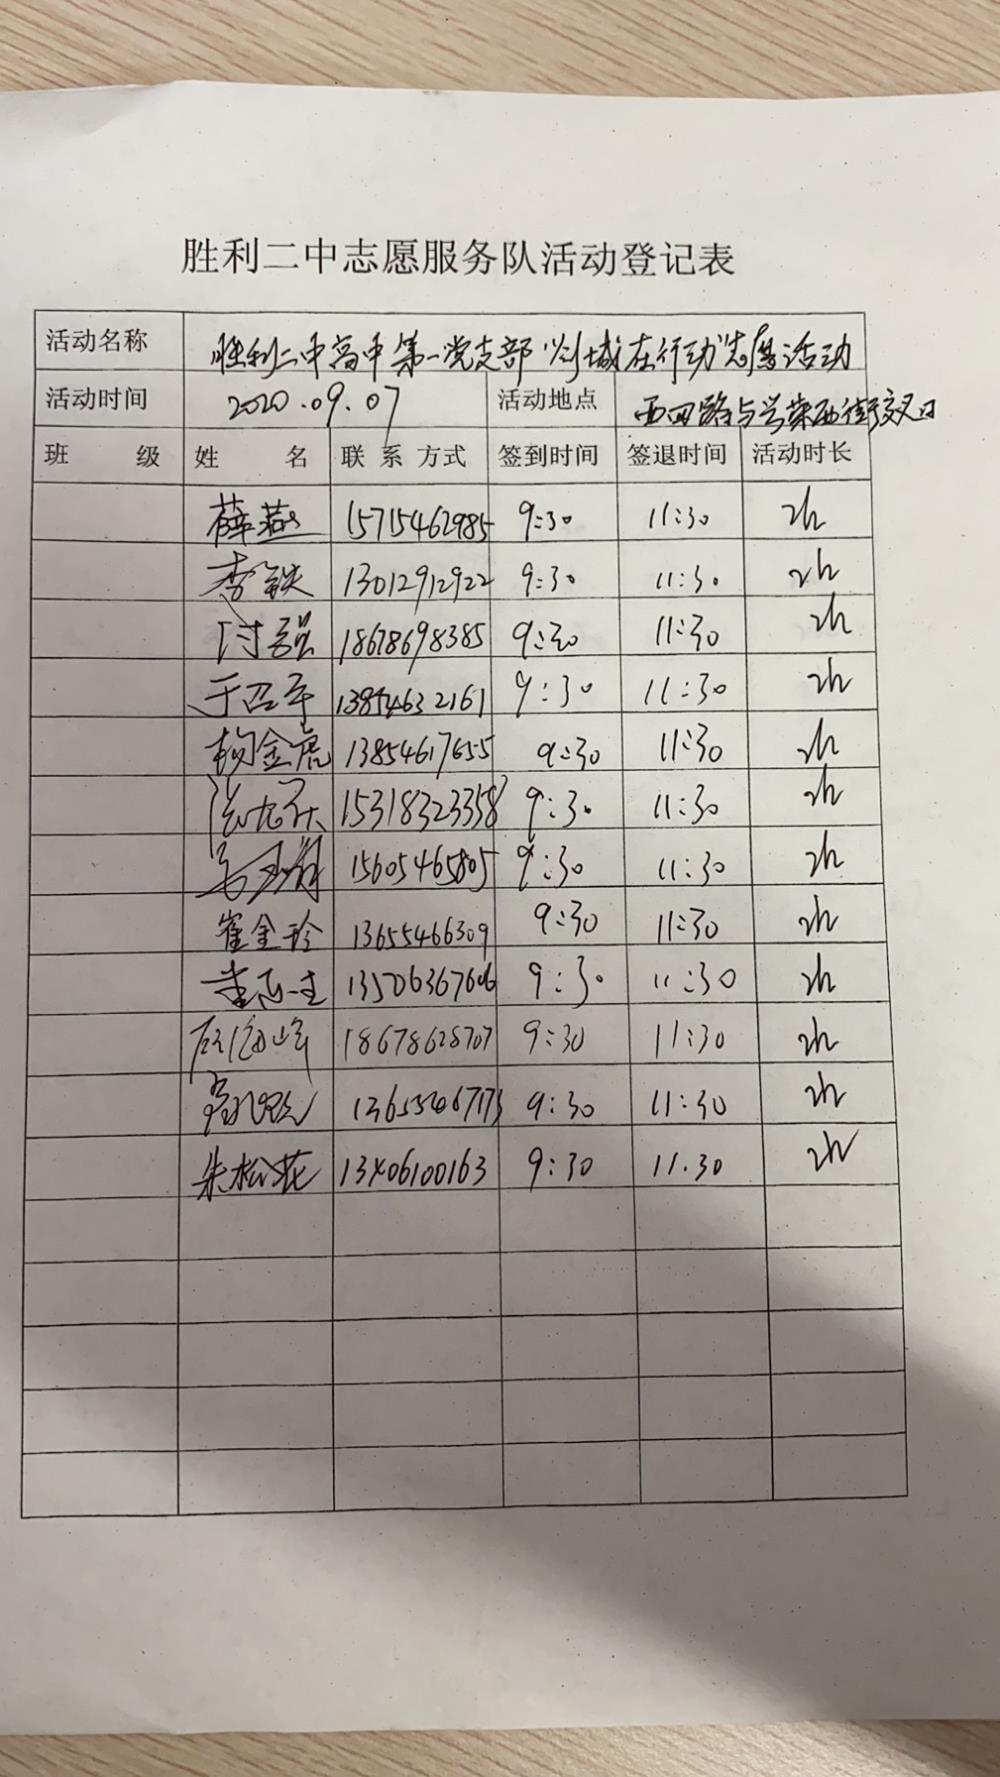 胜利二中志愿服务队活动登记表
活动名称 胜利二中高中第一党支部"创城在行动"志愿活动
活动时间 2020.09.07 活动地点 西四路与兴荣西街交叉口
班 级 姓 名 联 系 方式 签到时间 签退时间 活动时长
薛燕 15715462985 9:30 11:30 2h
李铁 13012912922 9:30 11:30 2h
付强 18678698385 9:30 11:30 2h
于召军 13854632161 9:30 11:30 2h
杨金虎 13854617655 9:30 11:30 2h
15318323358 9:30 11:30 2h
15605465805 9:30 11:30 2h
崔金玲 13655466309 9:30 11:30 2h
13506367606 9:30 11:30 2h
18678628707 9:30 11:30 2h
13655467173 9:30 11:30 2h
朱松花 13406100163 9:30 11.30 2h